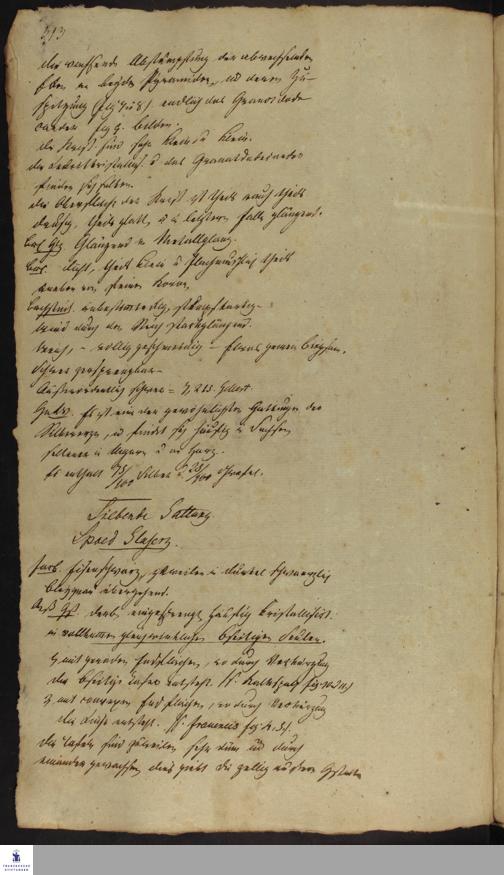 393
die wachsende Abstumpfung der abwechselnden
Eken an beyden Pyramiden, u deren Zu-
spitzung (fig 7 u 8) endlich das Granatdode
caeder fig 9. bilden.
die Krist. sind sehr klein u klein.
der u das Granatdodecaeder
finden sich selten.
die Oberfläche der Krist ist theils rauh theils
drusig, theils glatt, u in letztern falle glänzend.
Glänzend u Metallglanz.
dicht, theils klein u flachmuschlich theils
uneben von feinem Korne,
Bruchstük. unbestimmtekig, stumpfkantig-
wird durch den Strich starkglänzend.
weich, - völlig geschmeidig - gemein biegsam.
schwer zerspringbar-
Außerordentlich schwer = 7,215. Gellert.
Es ist eine der gewöhnlichsten Gattungen der
Silbererze, u findet sich häufig in Sachsen,
seltener in Ungarn u am Harz.
Er enthält 75/100 Silber u 25/100 Schwefel.
Siebende Gattung
Spröd Glaserz.
Farb. Eisenschwarz, zuweilen in dunkel schwärzlich
bleygrau übergehend.
derb, eingesprengt, häufig Kristallisirt:
in vollkommen gleichwinklichen 6seitigen Säulen.
mit geraden Endflächen, wo durch Verkürzung
die 6seitige Tafel entsteht. Kalkspath fig 10 u 11
mit convexen Endflächen, wo durch Verkürzung
die Linse entsteht.
die Tafeln sind zuweilen sehr dünn und durch
einander gewachsen, dies giebt die zellig
FRANCKESCHE
STIFTUNGEN